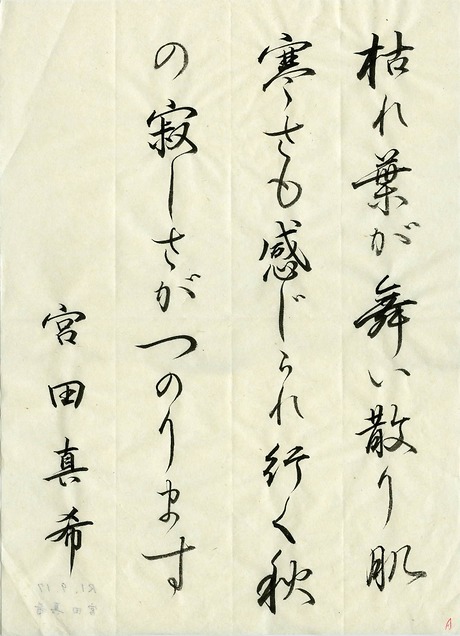 枯れ葉が舞い散り肌
寒さも感じられ行く秋
の寂しさがつのります
宮田真希
A